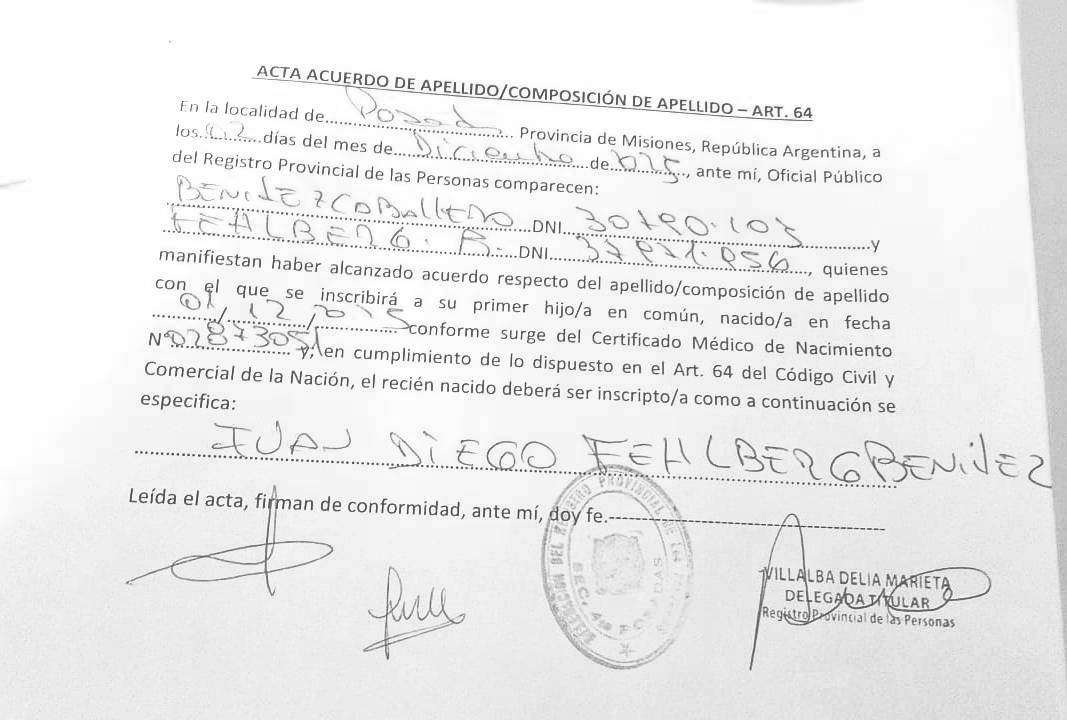 ACTA ACUERDO DE APELLIDO/COMPOSICIÓN DE APELLIDO – ART. 64
En la localidad de Posadas Provincia de Misiones, República Argentina, a
los 02 días del mes de Diciembre de 2025, ante mí, Oficial Público
del Registro Provincial de las Personas comparecen:
BENITEZ CABALLERO DNI 30790.103 y
FEHLBERG. R. DNI 37971.956, quienes
manifiestan haber alcanzado acuerdo respecto del apellido/composición de apellido
con el que se inscribirá a su primer hijo/a en común, nacido/a en fecha
01/12/2025 conforme surge del Certificado Médico de Nacimiento
N° y, en cumplimiento de lo dispuesto en el Art. 64 del Código Civil y
Comercial de la Nación, el recién nacido deberá ser inscripto/a como a continuación se
especifica:
JUAN DIEGO FEHLBERG BENITEZ
Leída el acta, firman de conformidad, ante mí, doy fe.
DEL REGISTRO PROVINCIAL DE LAS
SEC. 4a POSADAS
VILLALBA DELIA MARIETA
DELEGADA TITULAR
Registro Provincial de las Personas